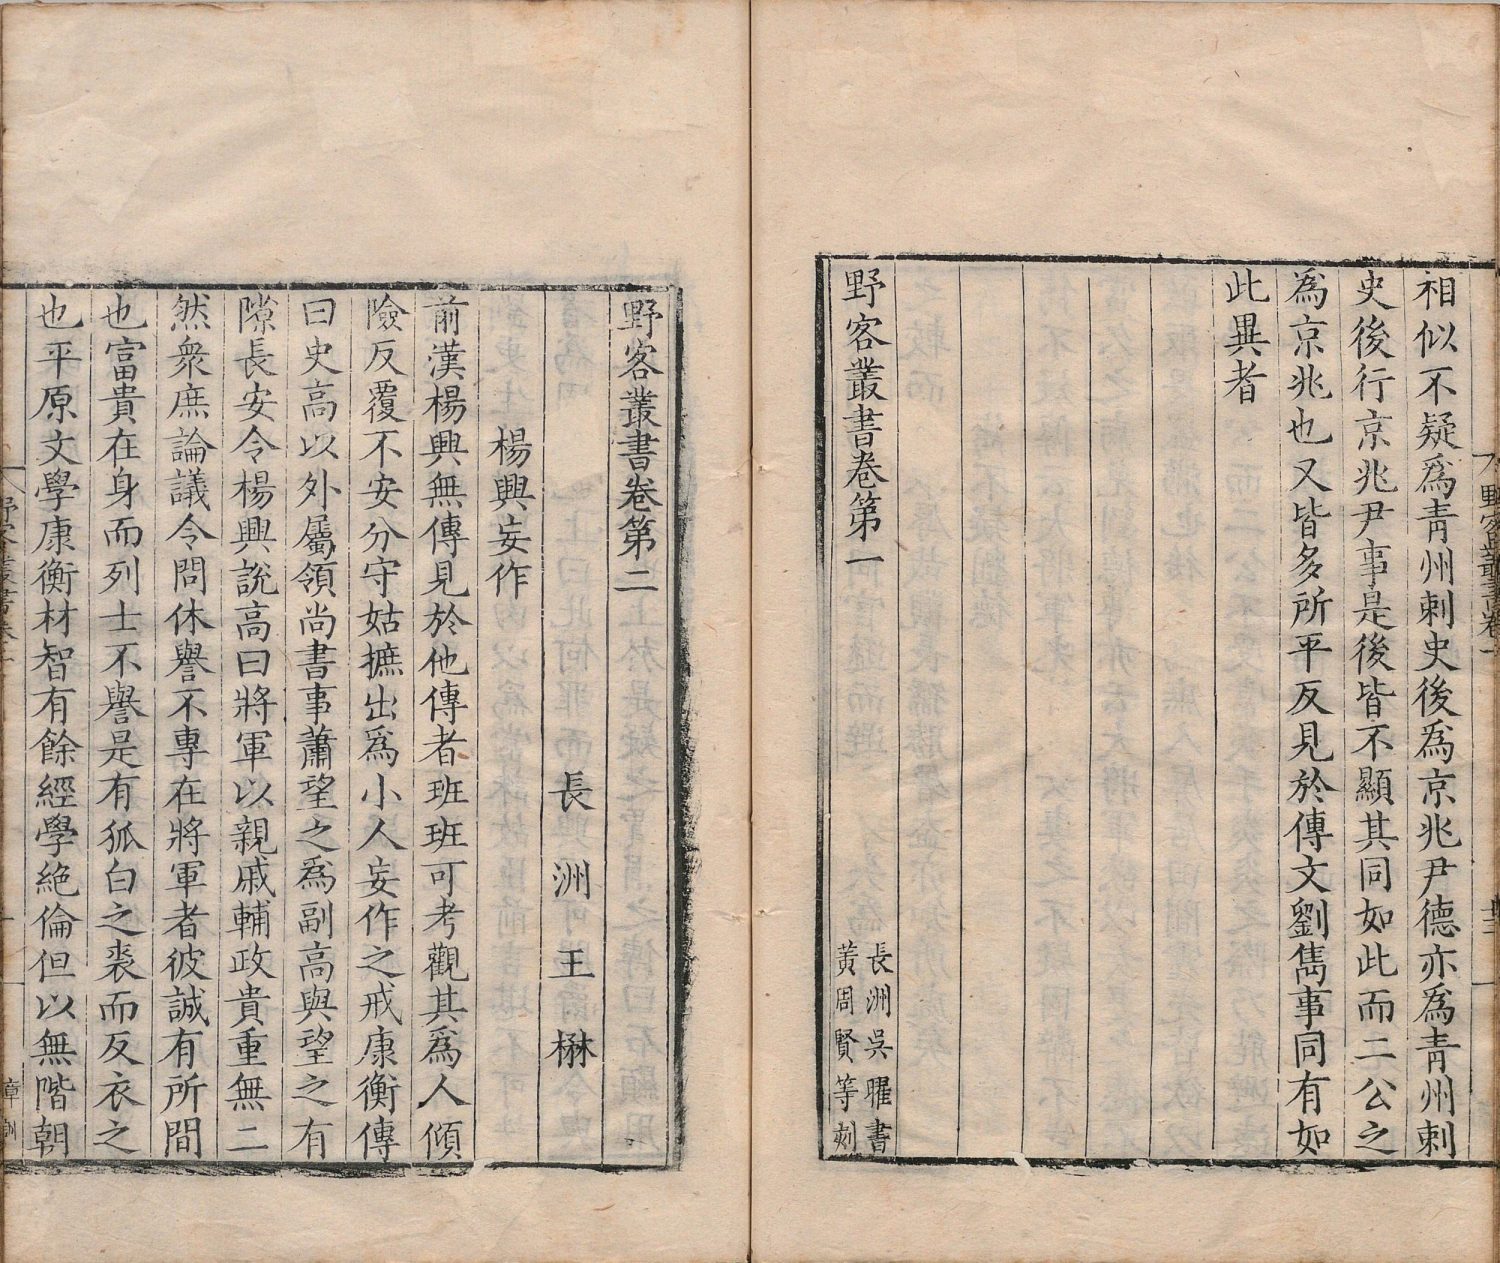 相似不疑爲青州刺史後爲京兆尹德亦爲青州刺
史後行京兆尹事是後皆不顯其同如此而二公之
爲京兆也又皆多所平反見於傳文劉雋事同有如
此異者
野客叢書卷第一
長洲吳曜書
黃周賢等刻
野客叢書卷第二
長洲王楙
楊興妄作
前漢楊興無傳見於他傳者班班可考觀其爲人傾
險反覆不安分守姑摭出爲小人妄作之戒康衡傳
曰史高以外屬領尚書事蕭望之爲副高與望之有
隙長安令楊興說高曰將軍以親戚輔政貴重無二
然衆庶論議令問休譽不專在將軍者彼誠有所間
也富貴在身而列士不譽是有狐白之裘而反衣之
也平原文學康衡材智有餘經學絶倫但以無階朝